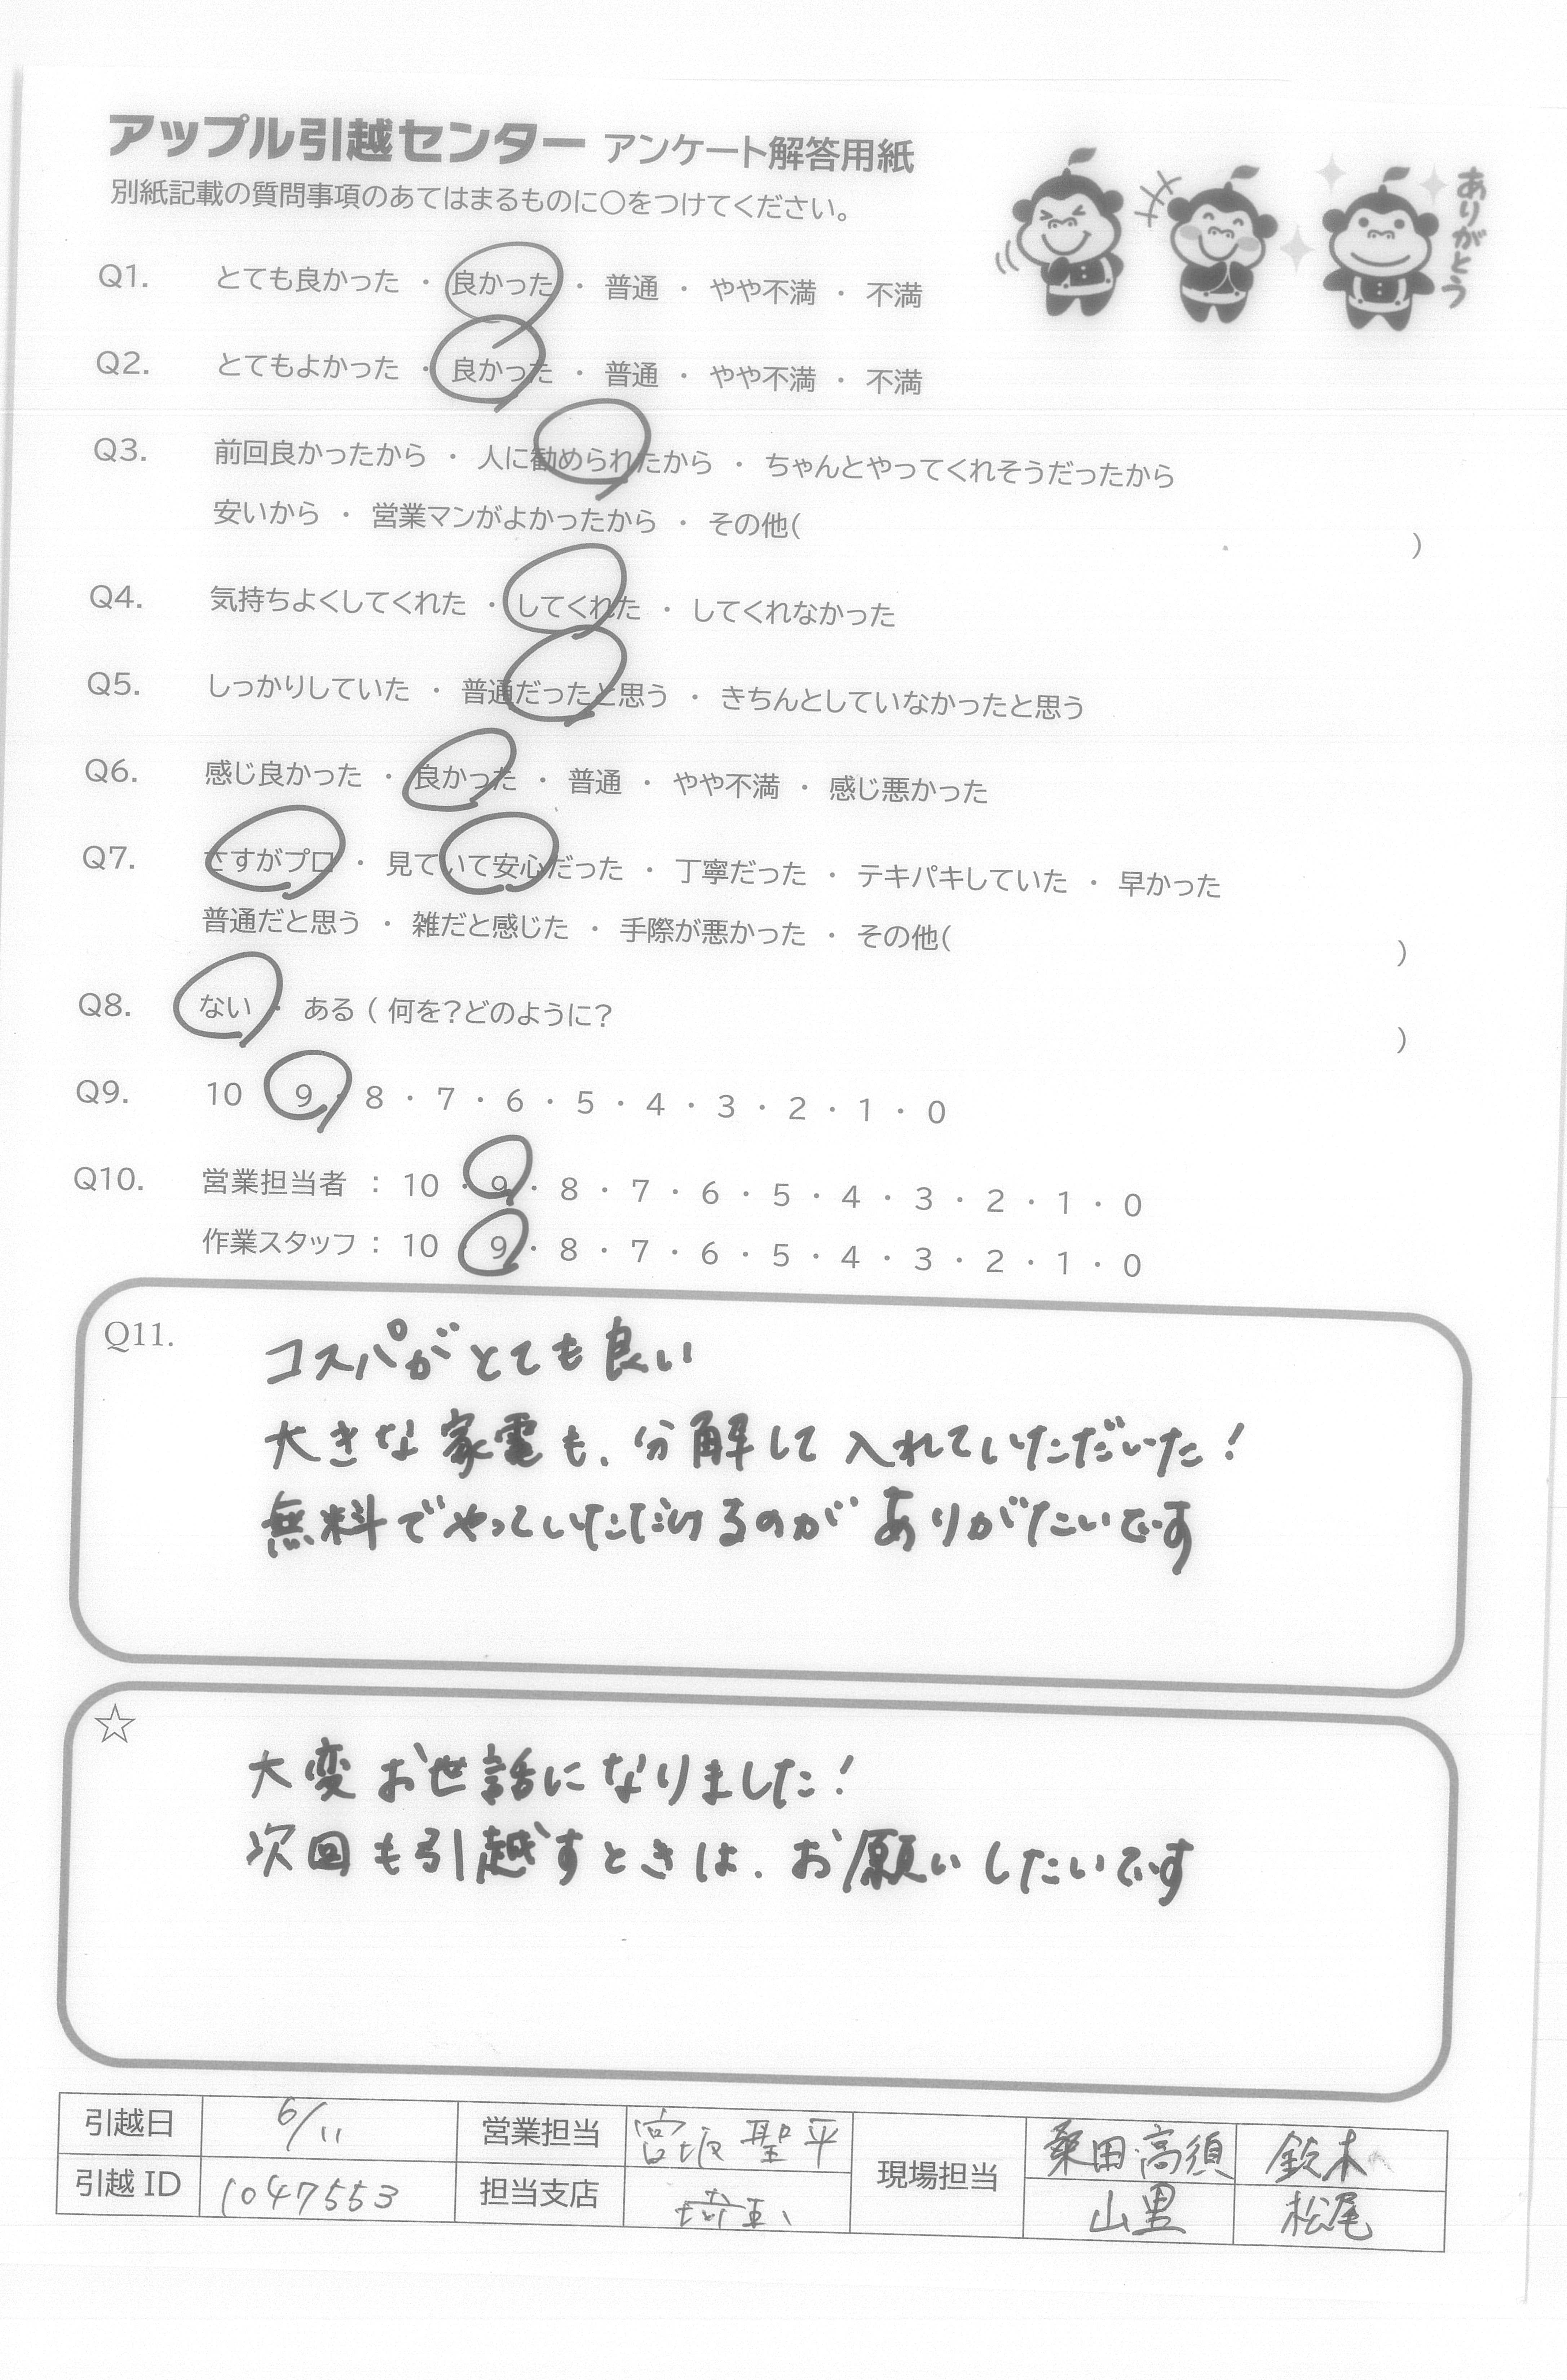 アップル引越センター アンケート解答用紙
別紙記載の質問事項のあてはまるものに○をつけてください。
ありがとう
Q1. とても良かった ・ 良かった ・ 普通 ・ やや不満 ・ 不満
Q2. とてもよかった ・ 良かった ・ 普通 ・ やや不満 ・ 不満
Q3. 前回良かったから ・ 人に勧められたから ・ ちゃんとやってくれそうだったから
安いから ・ 営業マンがよかったから ・ その他( )
Q4. 気持ちよくしてくれた ・ してくれた ・ してくれなかった
Q5. しっかりしていた ・ 普通だったと思う ・ きちんとしていなかったと思う
Q6. 感じ良かった ・ 良かった ・ 普通 ・ やや不満 ・ 感じ悪かった
Q7. さすがプロ ・ 見ていて安心だった ・ 丁寧だった ・ テキパキしていた ・ 早かった
普通だと思う ・ 雑だと感じた ・ 手際が悪かった ・ その他( )
Q8. ない ・ ある ( 何を?どのように? )
Q9. 10 ・ 9 ・ 8 ・ 7 ・ 6 ・ 5 ・ 4 ・ 3 ・ 2 ・ 1 ・ 0
Q10. 営業担当者 : 10 ・ 9 ・ 8 ・ 7 ・ 6 ・ 5 ・ 4 ・ 3 ・ 2 ・ 1 ・ 0
作業スタッフ : 10 ・ 9 ・ 8 ・ 7 ・ 6 ・ 5 ・ 4 ・ 3 ・ 2 ・ 1 ・ 0
Q11. コスパがとても良い
大きな家電も、分解して入れていただいた!
無料でやっていただけるのがありがたいです
☆ 大変お世話になりました!
次回も引越すときは、お願いしたいです
引越日 6/11 営業担当 宮坂 聖平 現場担当 桑田・高須 鈴木
引越 ID 1047553 担当支店 埼玉 山里 松尾